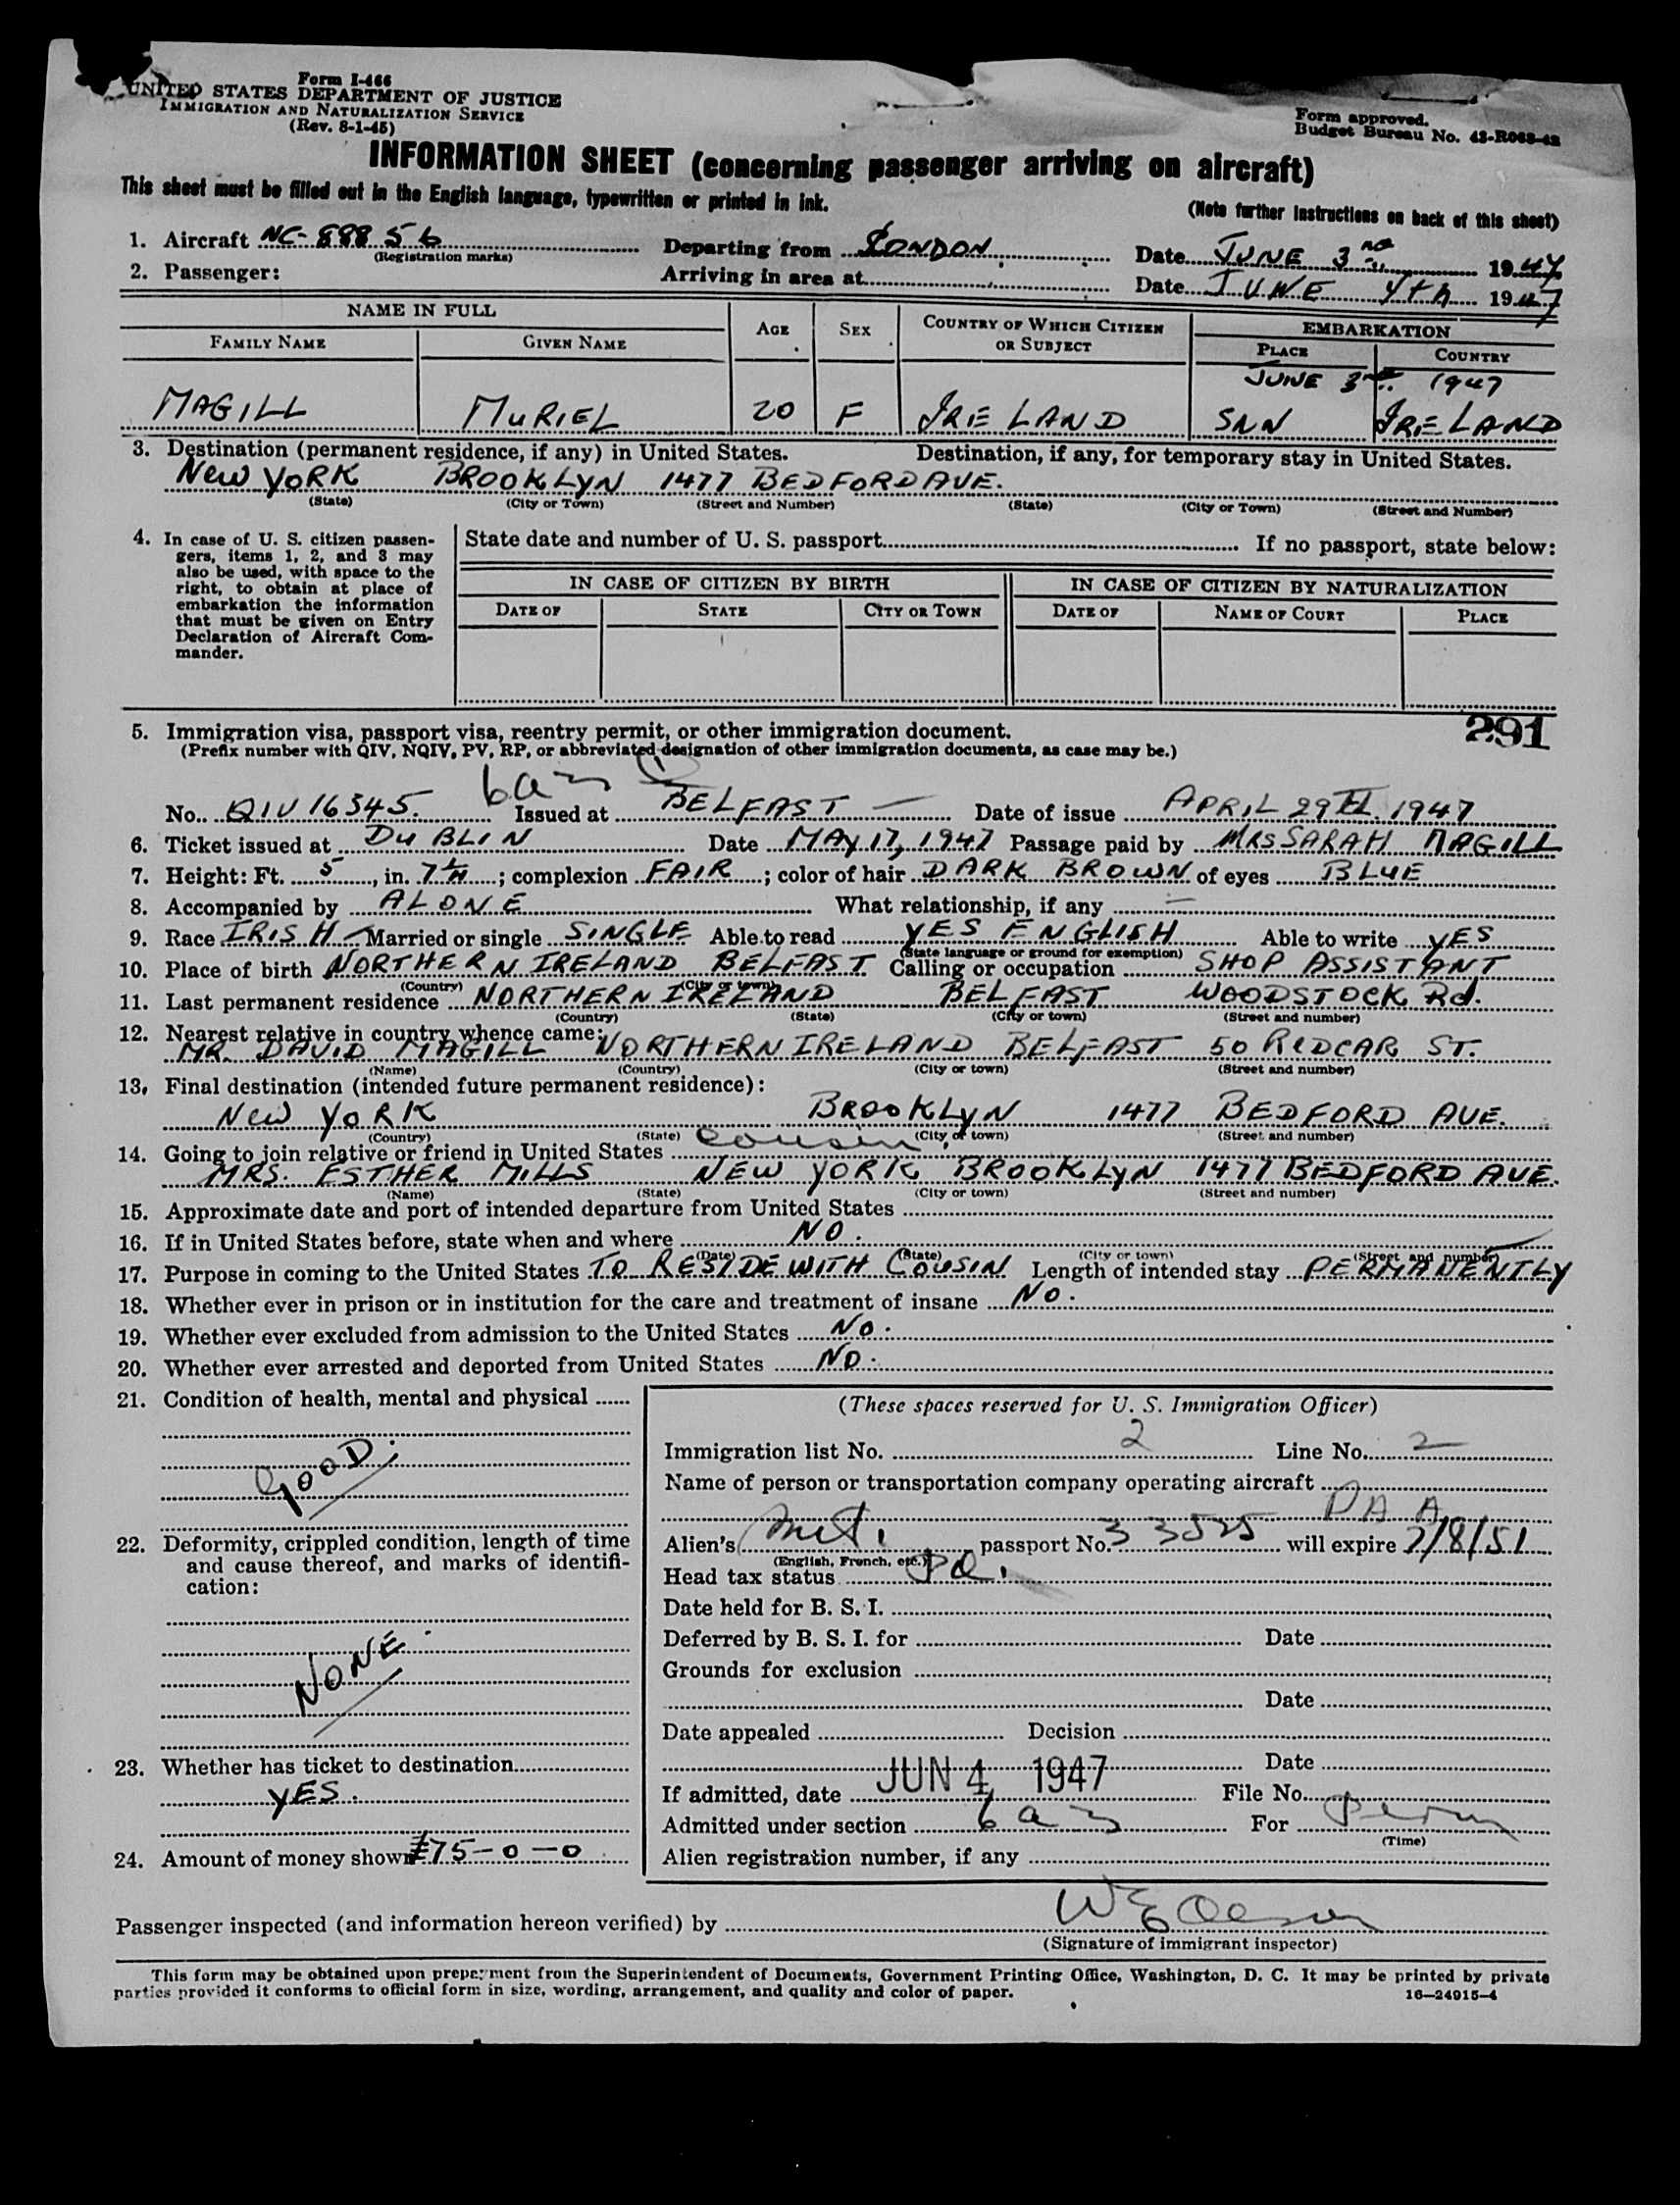 Form I-466
UNITED STATES DEPARTMENT OF JUSTICE
IMMIGRATION AND NATURALIZATION SERVICE
(Rev. 8-1-45)
Form approved.
Budget Bureau No. 43-R063-42
INFORMATION SHEET (concerning passenger arriving on aircraft)
This sheet must be filled out in the English language, typewritten or printed in ink.
(Note further instructions on back of this sheet)
1. Aircraft NC-88856 Departing from LONDON Date JUNE 3rd 1947
(Registration marks)
2. Passenger: Arriving in area at Date JUNE 4th 1947
NAME IN FULL AGE SEX COUNTRY OF WHICH CITIZEN OR SUBJECT EMBARKATION
FAMILY NAME GIVEN NAME PLACE COUNTRY
JUNE 3rd 1947
MAGILL MURIEL 20 F IRELAND SNN IRELAND
3. Destination (permanent residence, if any) in United States. Destination, if any, for temporary stay in United States.
NEW YORK BROOKLYN 1477 BEDFORD AVE.
(State) (City or Town) (Street and Number) (State) (City or Town) (Street and Number)
4. In case of U. S. citizen passen-
gers, items 1, 2, and 3 may
also be used, with space to the
right, to obtain at place of
embarkation the information
that must be given on Entry
Declaration of Aircraft Com-
mander.
State date and number of U. S. passport If no passport, state below:
IN CASE OF CITIZEN BY BIRTH IN CASE OF CITIZEN BY NATURALIZATION
DATE OF STATE CITY OR TOWN DATE OF NAME OF COURT PLACE
291
5. Immigration visa, passport visa, reentry permit, or other immigration document.
(Prefix number with QIV, NQIV, PV, RP, or abbreviated designation of other immigration documents, as case may be.)
6a3
No. QIV 16345. Issued at BELFAST Date of issue APRIL 29TH. 1947
6. Ticket issued at DUBLIN Date MAY 17, 1947 Passage paid by MRS SARAH MAGILL
7. Height: Ft. 5, in. 7½; complexion FAIR; color of hair DARK BROWN of eyes BLUE
8. Accompanied by ALONE What relationship, if any —
9. Race IRISH Married or single SINGLE Able to read YES ENGLISH Able to write YES
(State language or ground for exemption)
10. Place of birth NORTHERN IRELAND BELFAST Calling or occupation SHOP ASSISTANT
(Country) (City or town)
11. Last permanent residence NORTHERN IRELAND BELFAST WOODSTOCK Rd.
(Country) (State) (City or town) (Street and number)
12. Nearest relative in country whence came:
MR. DAVID MAGILL NORTHERN IRELAND BELFAST 50 REDCAR ST.
(Name) (Country) (City or town) (Street and number)
13. Final destination (intended future permanent residence):
NEW YORK BROOKLYN 1477 BEDFORD AVE.
(Country) (State) (City or town) (Street and number)
14. Going to join relative or friend in United States cousin
MRS. ESTHER MILLS NEW YORK BROOKLYN 1477 BEDFORD AVE.
(Name) (State) (City or town) (Street and number)
15. Approximate date and port of intended departure from United States
16. If in United States before, state when and where NO.
(Date) (State) (City or town) (Street and number)
17. Purpose in coming to the United States TO RESIDE WITH COUSIN Length of intended stay PERMANENTLY
18. Whether ever in prison or in institution for the care and treatment of insane NO.
19. Whether ever excluded from admission to the United States NO.
20. Whether ever arrested and deported from United States NO.
21. Condition of health, mental and physical
GOOD.
22. Deformity, crippled condition, length of time
and cause thereof, and marks of identifi-
cation:
NONE.
23. Whether has ticket to destination
YES.
24. Amount of money shown £75-0-0
(These spaces reserved for U. S. Immigration Officer)
Immigration list No. 2 Line No. 2
Name of person or transportation company operating aircraft
PAA
Alien's passport No. 33525 will expire 2/8/51
(English, French, etc.)
Head tax status Pd.
Date held for B. S. I.
Deferred by B. S. I. for Date
Grounds for exclusion
Date
Date appealed Decision
Date
If admitted, date JUN 4 1947 File No.
Admitted under section 6a3 For Perm
(Time)
Alien registration number, if any
Passenger inspected (and information hereon verified) by
(Signature of immigrant inspector)
This form may be obtained upon prepayment from the Superintendent of Documents, Government Printing Office, Washington, D. C. It may be printed by private
parties provided it conforms to official form in size, wording, arrangement, and quality and color of paper.
16—24915-4